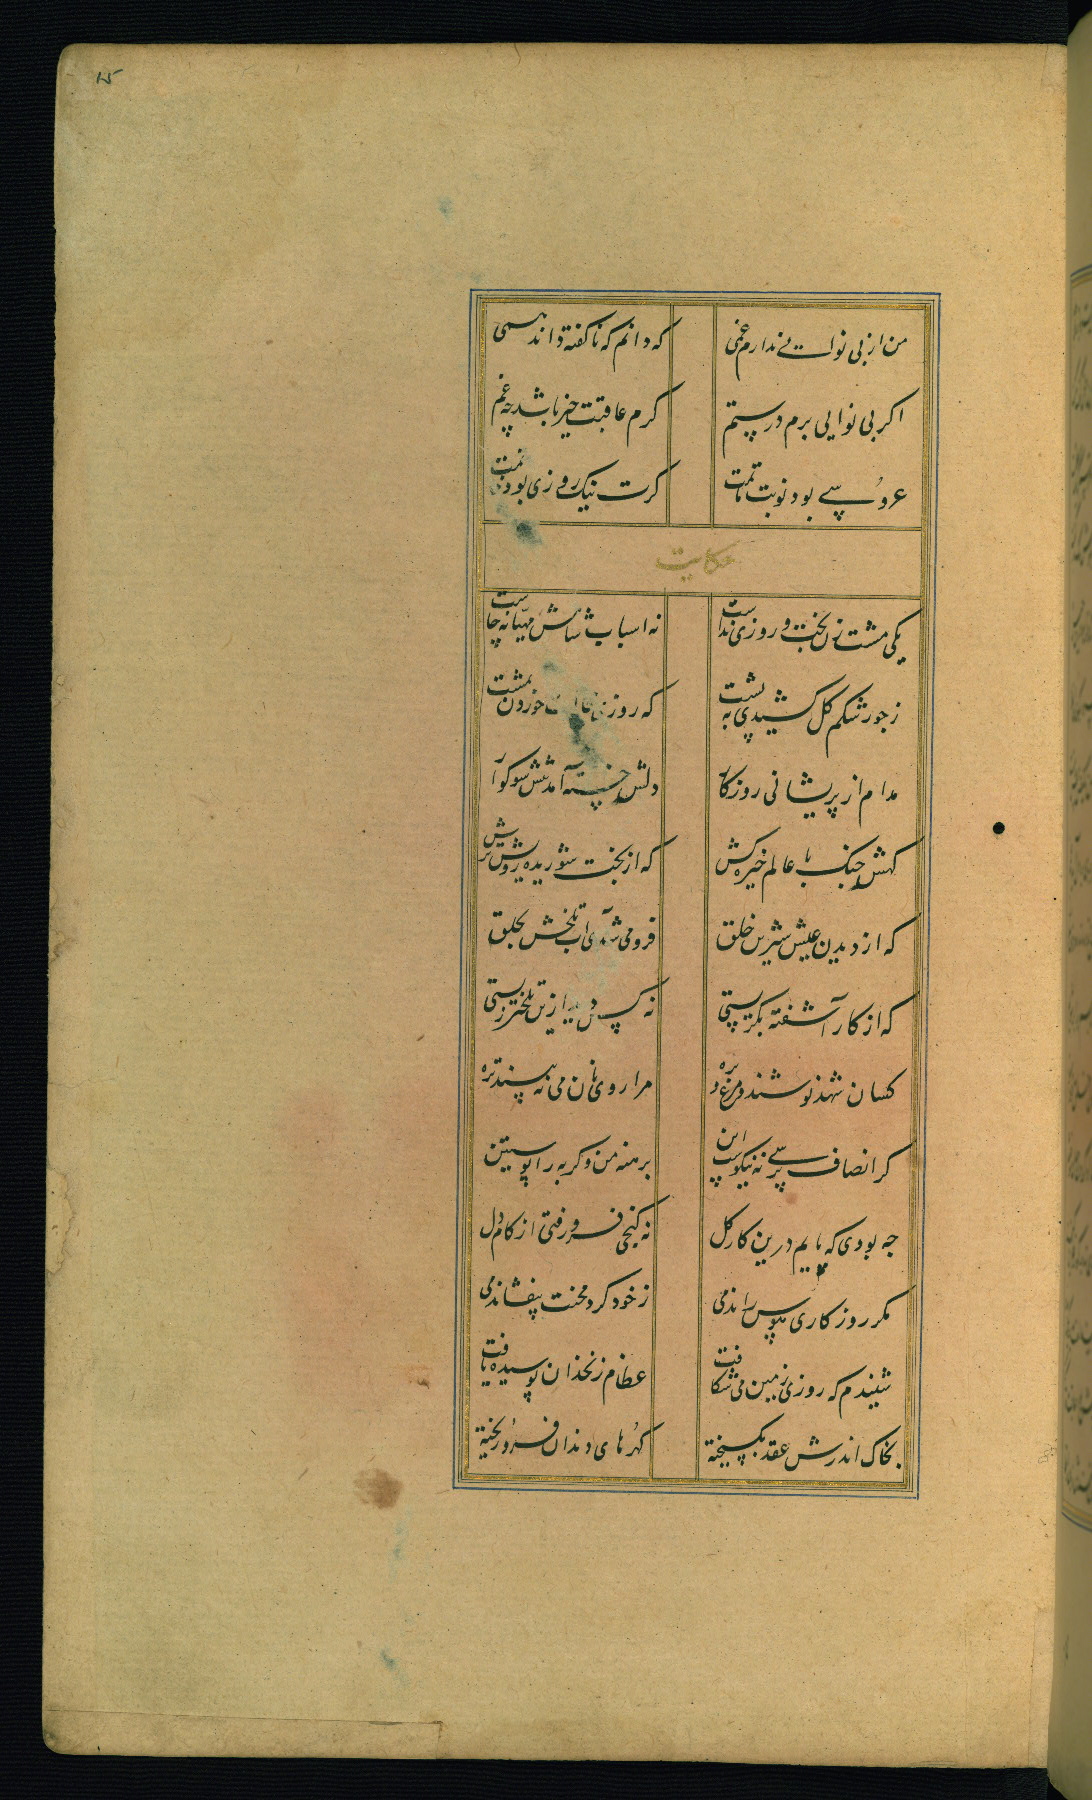 ۱۵
من از بی نوایی ندارم غمی که دانم که ناکفته داند همی
اکر بی نوایی برم در ستم کرم عاقبت خیر باشد چه غم
عروسی بود نوبت ماتمت کرت نیک روزی بود
حکایت
یکی مشت زن بخت و روزی نداشت نه اسباب شامش مهیا نه چاشت
ز جور شکم کل کشیدی به پشت که روزی خوردن بمشت
مدام از پریشانی روزکار دلش تن سوکوار
کهش جنک با عالم خیره کش که از بخت شوریده رویش ترش
که از دیدن عیش شیرین خلق فرو می شدی آب تلخش بحلق
که از کار آشفته بکریستی نه کس دید ازین تلختر زیستی
کسان شهد نوشند و مرغ و بره مرا روی نان می نبیند تره
کر انصاف پرسی نه نیکوست این برهنه من و کربه را پوستین
چه بودی که پایم درین کار کل نه کنجی فرو رفتی از کام دل
مکر روزکاری هوس راندمی ز خود کرد محنت بیفشاندمی
شنیدم که روزی زمین می شکافت عظام زنخدان پوسیده یافت
بخاک اندرش عقد بکسیخته کهرهای دندان فرو ریخته